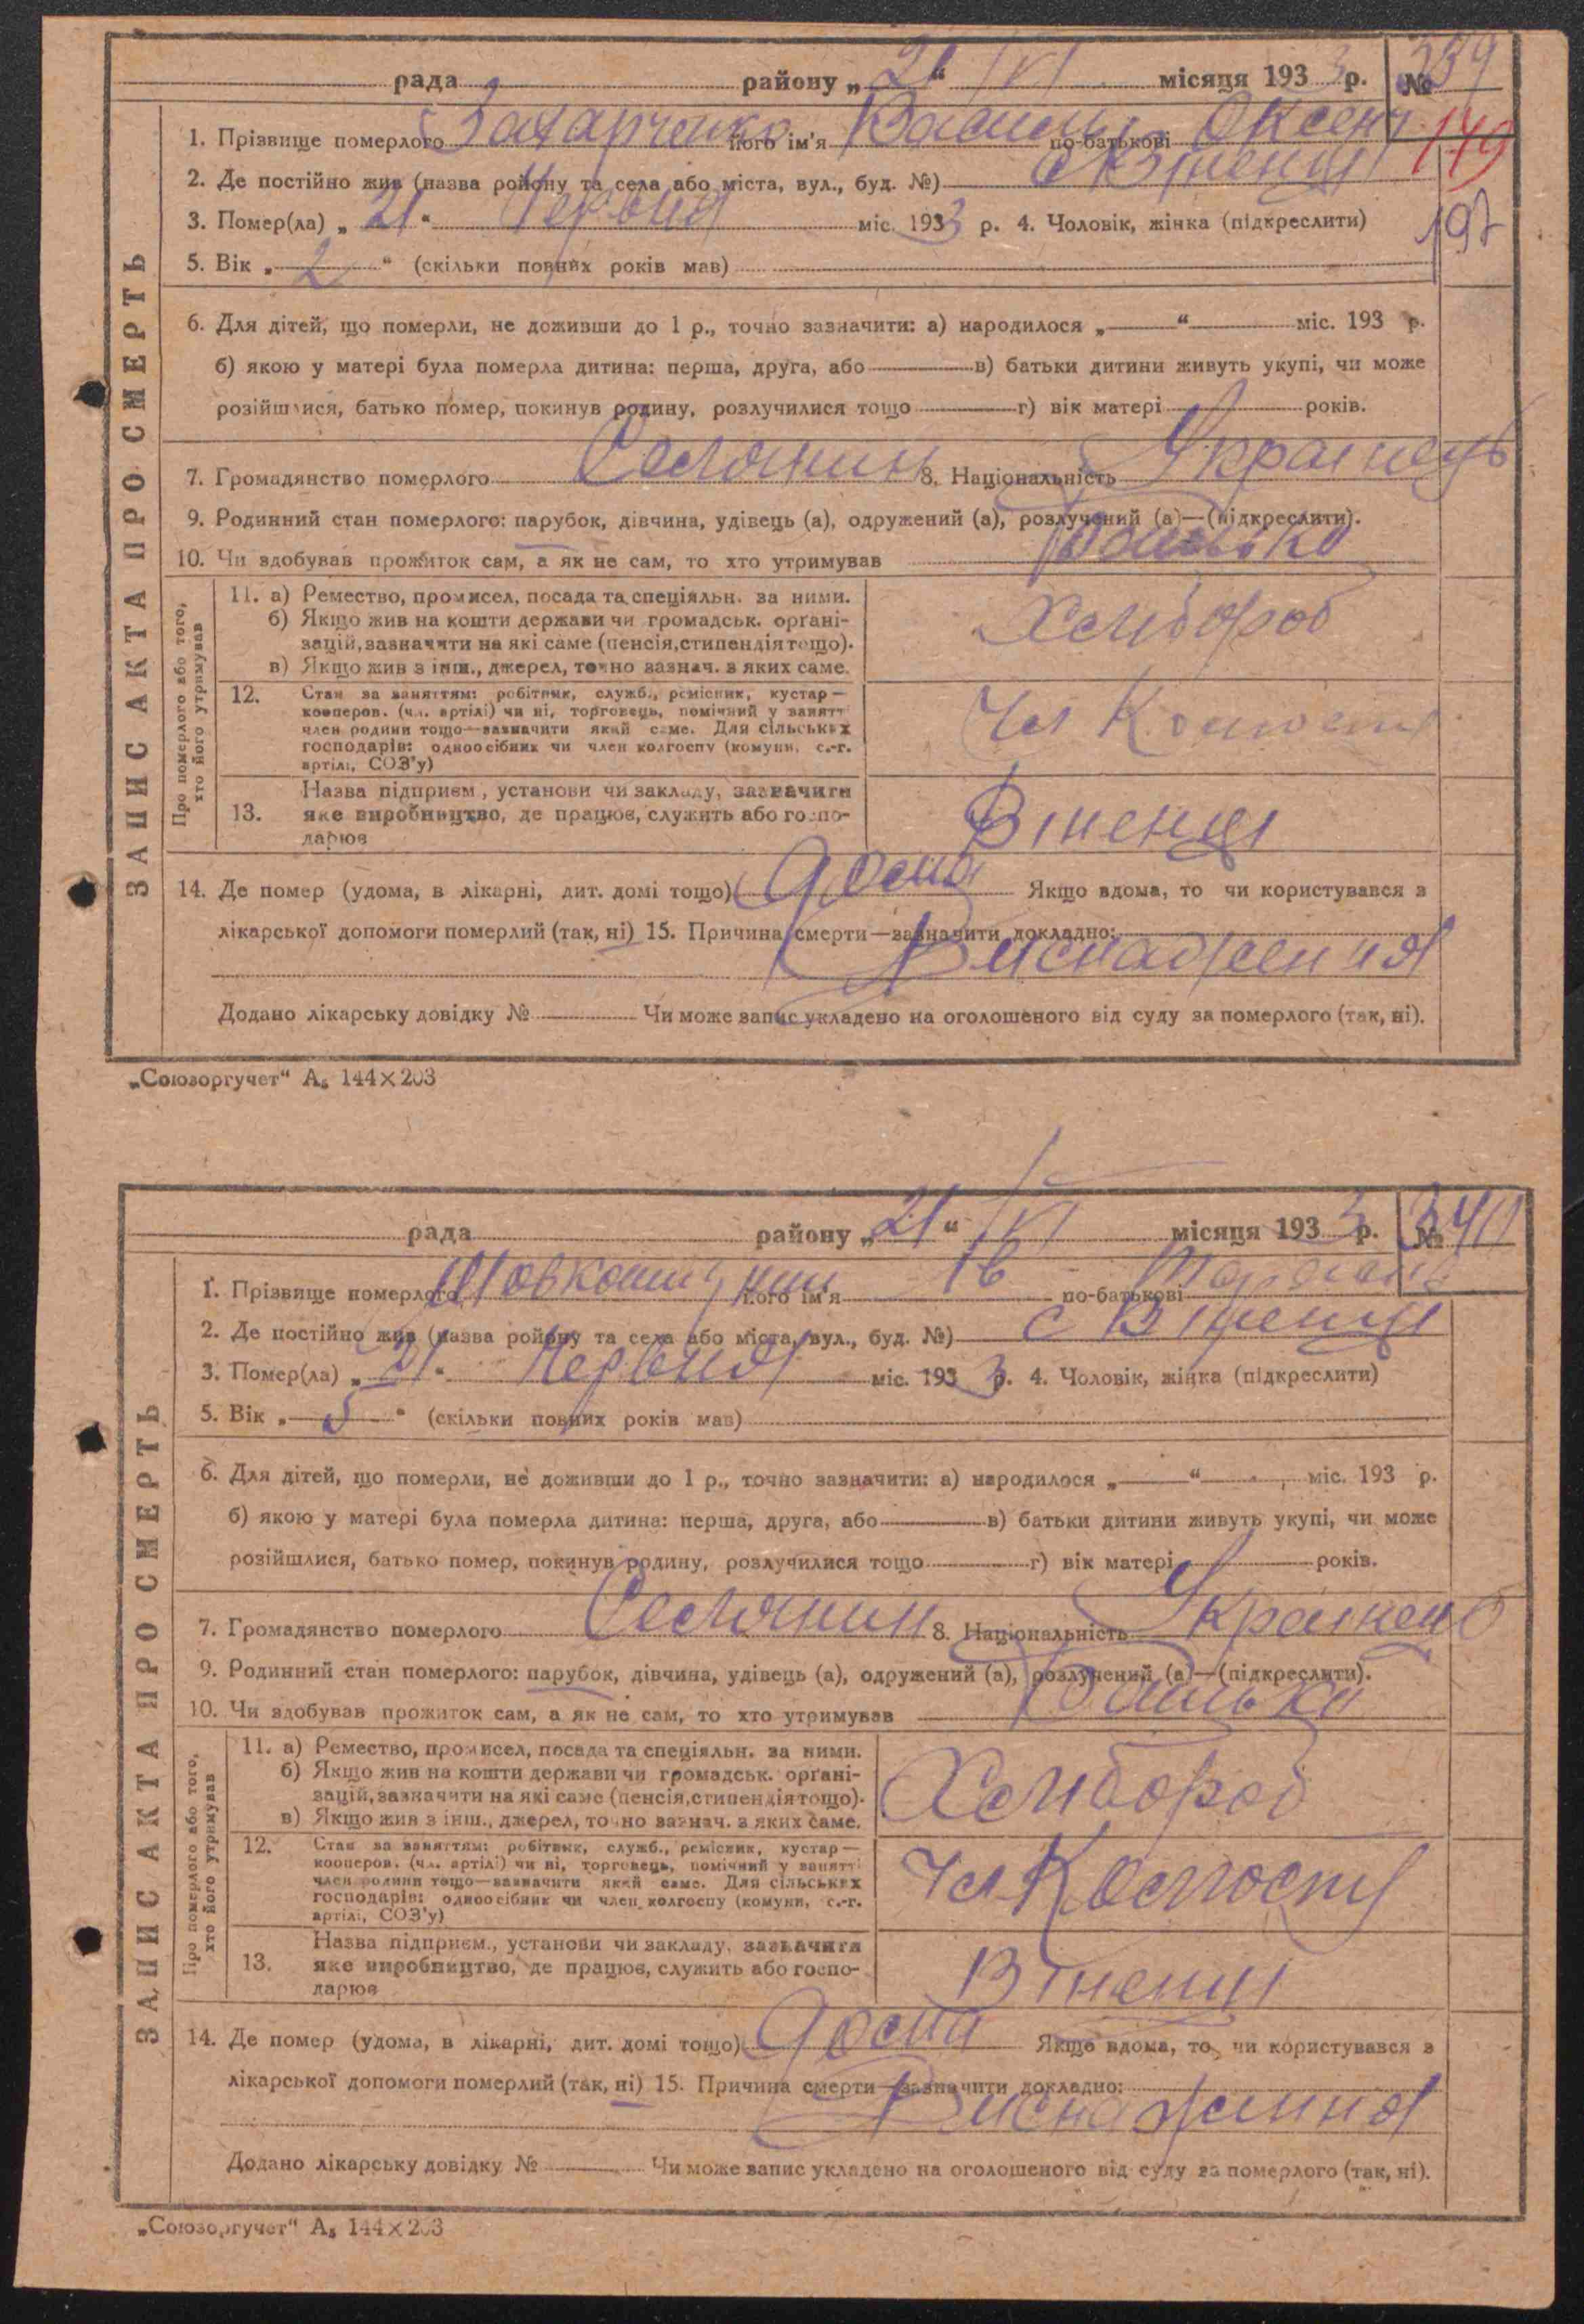 рада району „21“ VI місяця 1933 р. № 339
1. Прізвище померлого Захарченко його ім'я Василь по-батькові Оксент
149
2. Де постійно жив (назва району та села або міста, вул., буд. №) с Віненці
3. Помер(ла) „21“ Червня міс. 1933 р. 4. Чоловік, жінка (підкреслити)
197
5. Вік „2“ (скільки повних років мав)
6. Для дітей, що померли, не доживши до 1 р., точно зазначити: а) народилося „ “ міс. 193 р.
б) якою у матері була померла дитина: перша, друга, або в) батьки дитини живуть укупі, чи може
розійшлися, батько помер, покинув родину, розлучилися тощо г) вік матері років.
7. Громадянство померлого Селянин 8. Національність Українець
9. Родинний стан померлого: парубок, дівчина, удівець (а), одружений (а), розлучений (а)—(підкреслити).
10. Чи здобував прожиток сам, а як не сам, то хто утримував Батько
ЗАПИС АКТА ПРО СМЕРТЬ
Про померлого або того,
хто його утримував
11. а) Ремество, промисел, посада та спеціяльн. за ними.
б) Якщо жив на кошти держави чи громадськ. орґані-
зацій, зазначити на які саме (пенсія, стипендія тощо).
в) Якщо жив з інш., джерел, точно зазнач. з яких саме.
Хлібороб
12. Стан за заняттям: робітник, служб., ремісник, кустар—
кооперов. (чл. артілі) чи ні, торговець, помічний у занятті
член родини тощо—зазначити який саме. Для сільських
господарів: одноосібник чи член колгоспу (комуни, с.-г.
артілі, СОЗ'у)
Чл Колгоспу
Назва підприєм., установи чи закладу, зазначити
13. яке виробництво, де працює, служить або госпо-
дарює
Віненці
14. Де помер (удома, в лікарні, дит. домі тощо) Дома Якщо вдома, то чи користувався з
лікарської допомоги померлий (так, ні) 15. Причина смерти—зазначити докладно:
Виснаження
Додано лікарську довідку № Чи може запис укладено на оголошеного від суду за померлого (так, ні).
„Союзоргучет“ А₅ 144×203
рада району „21“ VI місяця 1933 р. № 340
1. Прізвище померлого його ім'я Ів по-батькові
2. Де постійно жив (назва району та села або міста, вул., буд. №) с Віненці
3. Помер(ла) „21“ Червня міс. 1933 р. 4. Чоловік, жінка (підкреслити)
5. Вік „5“ (скільки повних років мав)
6. Для дітей, що померли, не доживши до 1 р., точно зазначити: а) народилося „ “ міс. 193 р.
б) якою у матері була померла дитина: перша, друга, або в) батьки дитини живуть укупі, чи може
розійшлися, батько помер, покинув родину, розлучилися тощо г) вік матері років.
7. Громадянство померлого Селянин 8. Національність Українець
9. Родинний стан померлого: парубок, дівчина, удівець (а), одружений (а), розлучений (а)—(підкреслити).
10. Чи здобував прожиток сам, а як не сам, то хто утримував Батько
ЗАПИС АКТА ПРО СМЕРТЬ
Про померлого або того,
хто його утримував
11. а) Ремество, промисел, посада та спеціяльн. за ними.
б) Якщо жив на кошти держави чи громадськ. орґані-
зацій, зазначити на які саме (пенсія, стипендія тощо).
в) Якщо жив з інш., джерел, точно зазнач. з яких саме.
Хлібороб
12. Стан за заняттям: робітник, служб., ремісник, кустар—
кооперов. (чл. артілі) чи ні, торговець, помічний у занятті
член родини тощо—зазначити який саме. Для сільських
господарів: одноосібник чи член колгоспу (комуни, с.-г.
артілі, СОЗ'у)
Чл Колгоспу
Назва підприєм., установи чи закладу, зазначити
13. яке виробництво, де працює, служить або госпо-
дарює
Віненці
14. Де помер (удома, в лікарні, дит. домі тощо) Дома Якщо вдома, то чи користувався з
лікарської допомоги померлий (так, ні) 15. Причина смерти—зазначити докладно:
Виснаження
Додано лікарську довідку № Чи може запис укладено на оголошеного від суду за померлого (так, ні).
„Союзоргучет“ А₅ 144×203